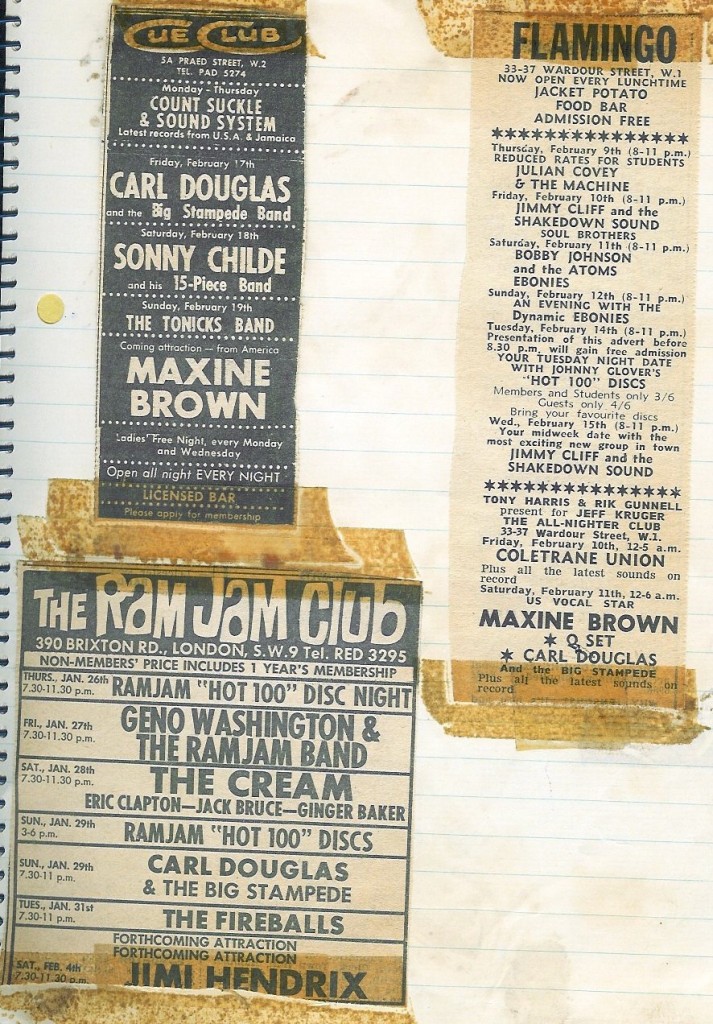 CUE CLUB
5A PRAED STREET, W.2
TEL. PAD 5274
Monday - Thursday
COUNT SUCKLE
& SOUND SYSTEM
Latest records from U.S.A. & Jamaica
Friday, February 17th
CARL DOUGLAS
and the Big Stampede Band
Saturday, February 18th
SONNY CHILDE
and his 15-Piece Band
Sunday, February 19th
THE TONICKS BAND
Coming attraction — from America
MAXINE
BROWN
Ladies' Free Night, every Monday
and Wednesday
Open all night EVERY NIGHT
LICENSED BAR
Please apply for membership
FLAMINGO
33-37 WARDOUR STREET, W.1
NOW OPEN EVERY LUNCHTIME
JACKET POTATO
FOOD BAR
ADMISSION FREE
Thursday, February 9th (8-11 p.m.)
REDUCED RATES FOR STUDENTS
JULIAN COVEY
& THE MACHINE
Friday, February 10th (8-11 p.m.)
JIMMY CLIFF and the
SHAKEDOWN SOUND
SOUL BROTHERS
Saturday, February 11th (8-11 p.m.)
BOBBY JOHNSON
and the ATOMS
EBONIES
Sunday, February 12th (8-11 p.m.)
AN EVENING WITH THE
Dynamic EBONIES
Tuesday, February 14th (8-11 p.m.)
Presentation of this advert before
8.30 p.m. will gain free admission
YOUR TUESDAY NIGHT DATE
WITH JOHNNY GLOVER'S
"HOT 100" DISCS
Members and Students only 3/6
Guests only 4/6
Bring your favourite discs
Wed., February 15th (8-11 p.m.)
Your midweek date with the
most exciting new group in town
JIMMY CLIFF and the
SHAKEDOWN SOUND
TONY HARRIS & RIK GUNNELL
present for JEFF KRUGER
THE ALL-NIGHTER CLUB
33-37 Wardour Street, W.1.
Friday, February 10th, 12-5 a.m.
COLETRANE UNION
Plus all the latest sounds on
record
Saturday, February 11th, 12-6 a.m.
US VOCAL STAR
MAXINE BROWN
★ Q SET
★ CARL DOUGLAS
And the BIG STAMPEDE
Plus all the latest sounds on
record
THE RAM JAM CLUB
390 BRIXTON RD., LONDON, S.W.9 Tel. RED 3295
NON-MEMBERS' PRICE INCLUDES 1 YEAR'S MEMBERSHIP
THURS., JAN. 26th
7.30-11.30 p.m.
RAMJAM "HOT 100" DISC NIGHT
FRI., JAN. 27th
7.30-11.30 p.m.
GENO WASHINGTON &
THE RAMJAM BAND
SAT., JAN. 28th
7.30-11.30 p.m.
THE CREAM
ERIC CLAPTON—JACK BRUCE—GINGER BAKER
SUN., JAN. 29th
3-6 p.m.
RAMJAM "HOT 100" DISCS
SUN., JAN. 29th
7.30-11 p.m.
CARL DOUGLAS
& THE BIG STAMPEDE
TUES., JAN. 31st
7.30-11 p.m.
THE FIREBALLS
FORTHCOMING ATTRACTION
FORTHCOMING ATTRACTION
SAT., FEB. 4th
7.30-11.30 p.m.
JIMI HENDRIX